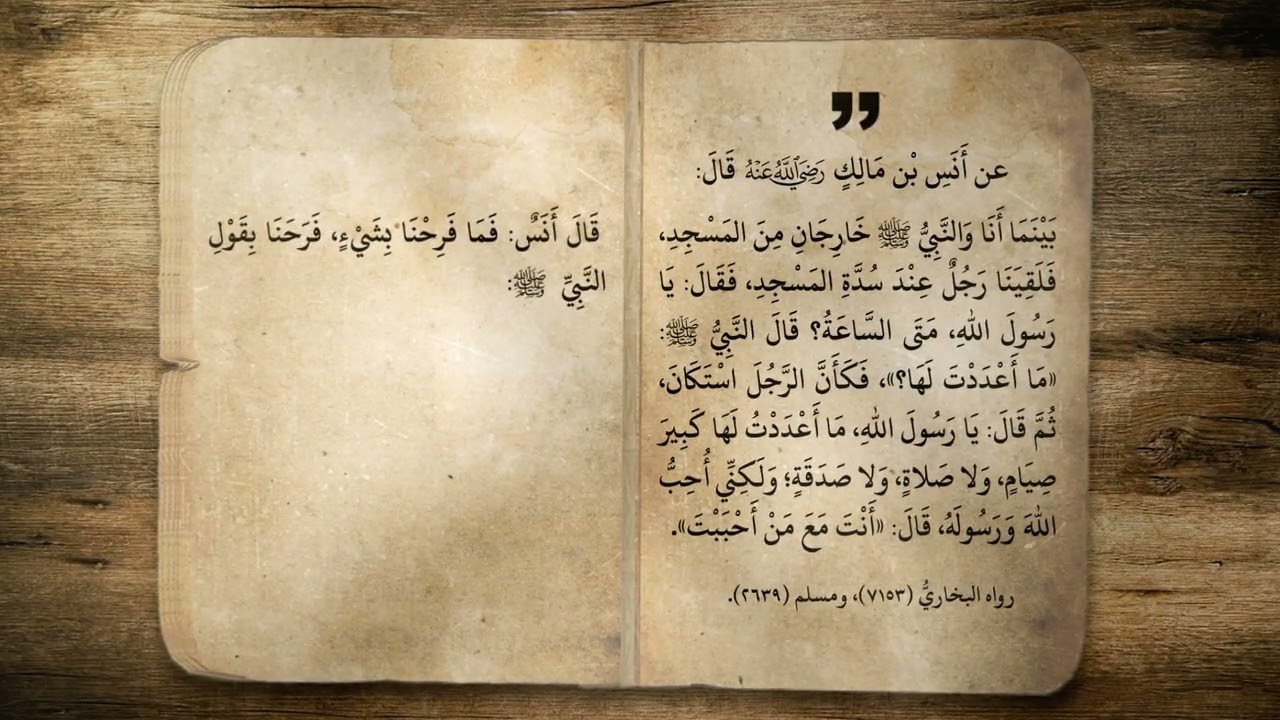 ❞
عن أَنَسِ بْن مَالِكٍ رَضِيَ اللَّهُ عَنْهُ قَالَ:
بَيْنَمَا أَنَا وَالنَّبِيُّ ﷺ خَارِجَانِ مِنَ المَسْجِدِ،
فَلَقِيَنَا رَجُلٌ عِنْدَ سُدَّةِ المَسْجِدِ، فَقَالَ: يَا
رَسُولَ اللهِ، مَتَى السَّاعَةُ؟ قَالَ النَّبِيُّ ﷺ:
«مَا أَعْدَدْتَ لَهَا؟»، فَكَأَنَّ الرَّجُلَ اسْتَكَانَ،
ثُمَّ قَالَ: يَا رَسُولَ اللهِ، مَا أَعْدَدْتُ لَهَا كَبِيرَ
صِيَامٍ، وَلا صَلاةٍ، وَلا صَدَقَةٍ؛ وَلَكِنِّي أُحِبُّ
اللهَ وَرَسُولَهُ، قَالَ: «أَنْتَ مَعَ مَنْ أَحْبَبْتَ».
رواه البخاريُّ (٧١٥٣)، ومسلم (٢٦٣٩).
قَالَ أَنَسٌ: فَمَا فَرِحْنَا بِشَيْءٍ، فَرَحَنَا بِقَوْلِ
النَّبِيِّ ﷺ: